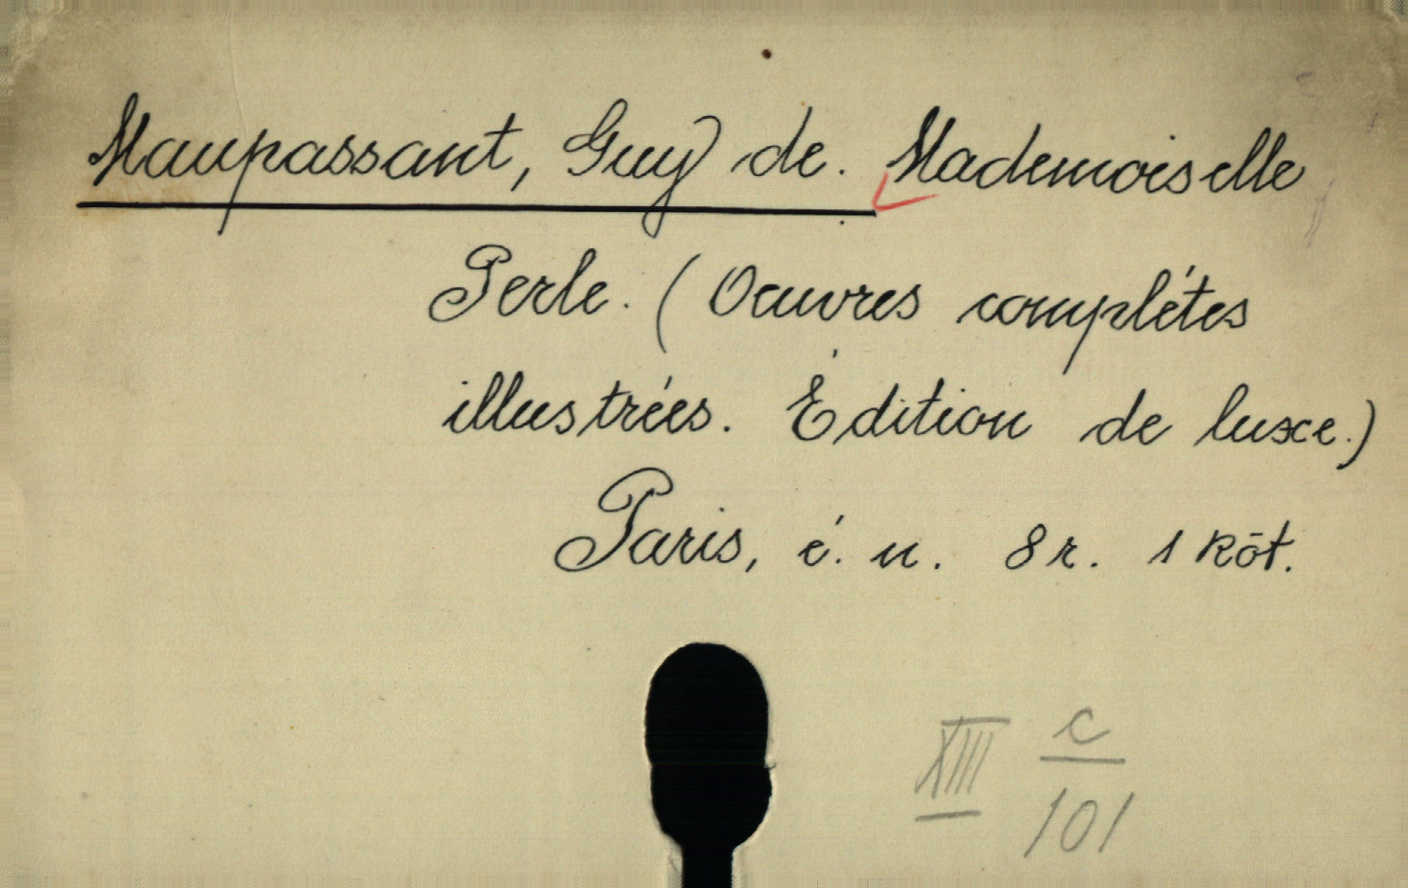 Maupassant, Guy de. Mademoiselle
Perle. (Oeuvres complétes
illustrées. Édition de luxe.)
Paris, é. n. 8r. 1 köt.
XIII c
101